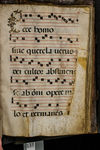 Ecce homo
sine querela verus
dei cultor abstinens
se ab omni opere ma
lo et permanens